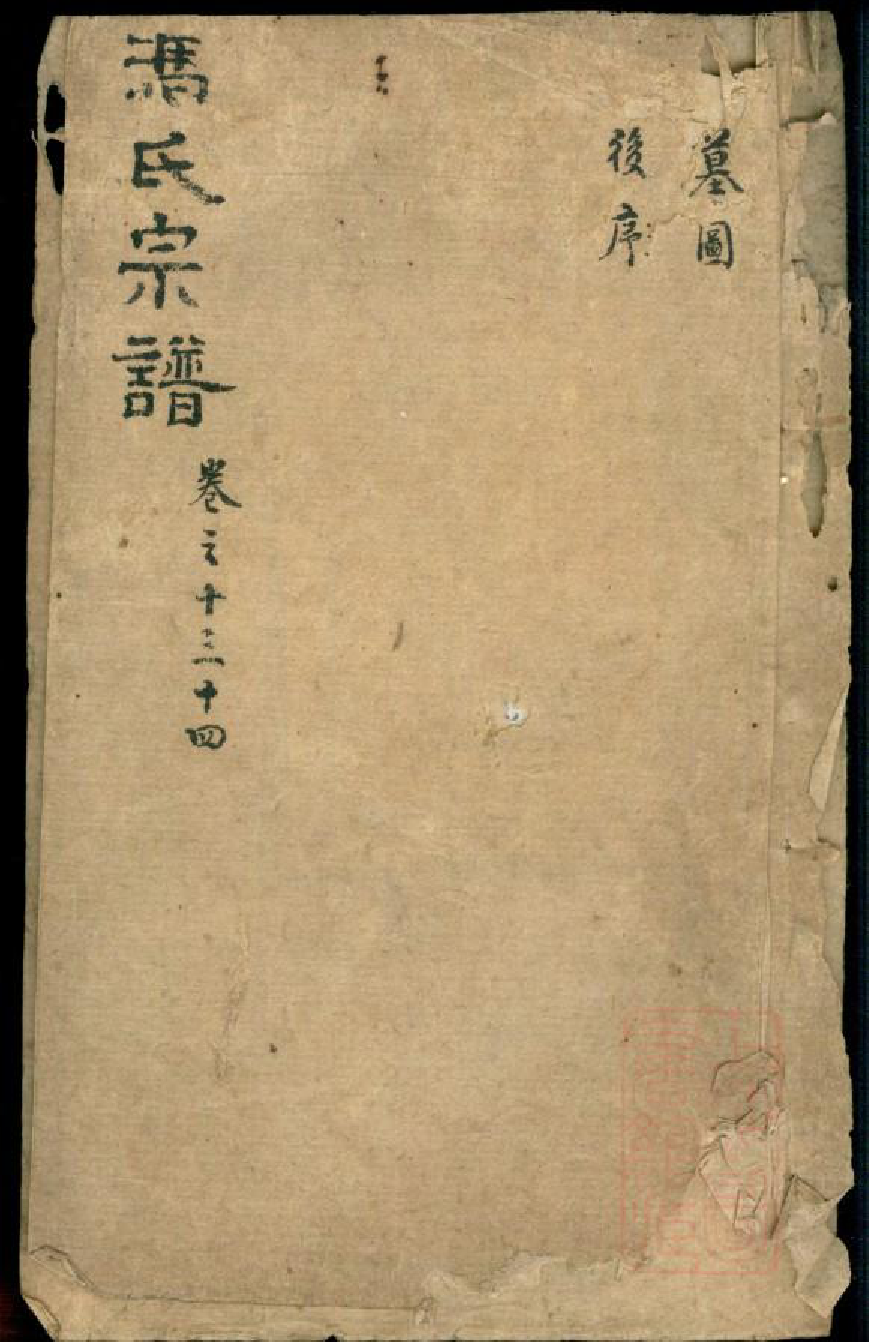 墓圖
後序
馮氏宗譜
卷之十三十四